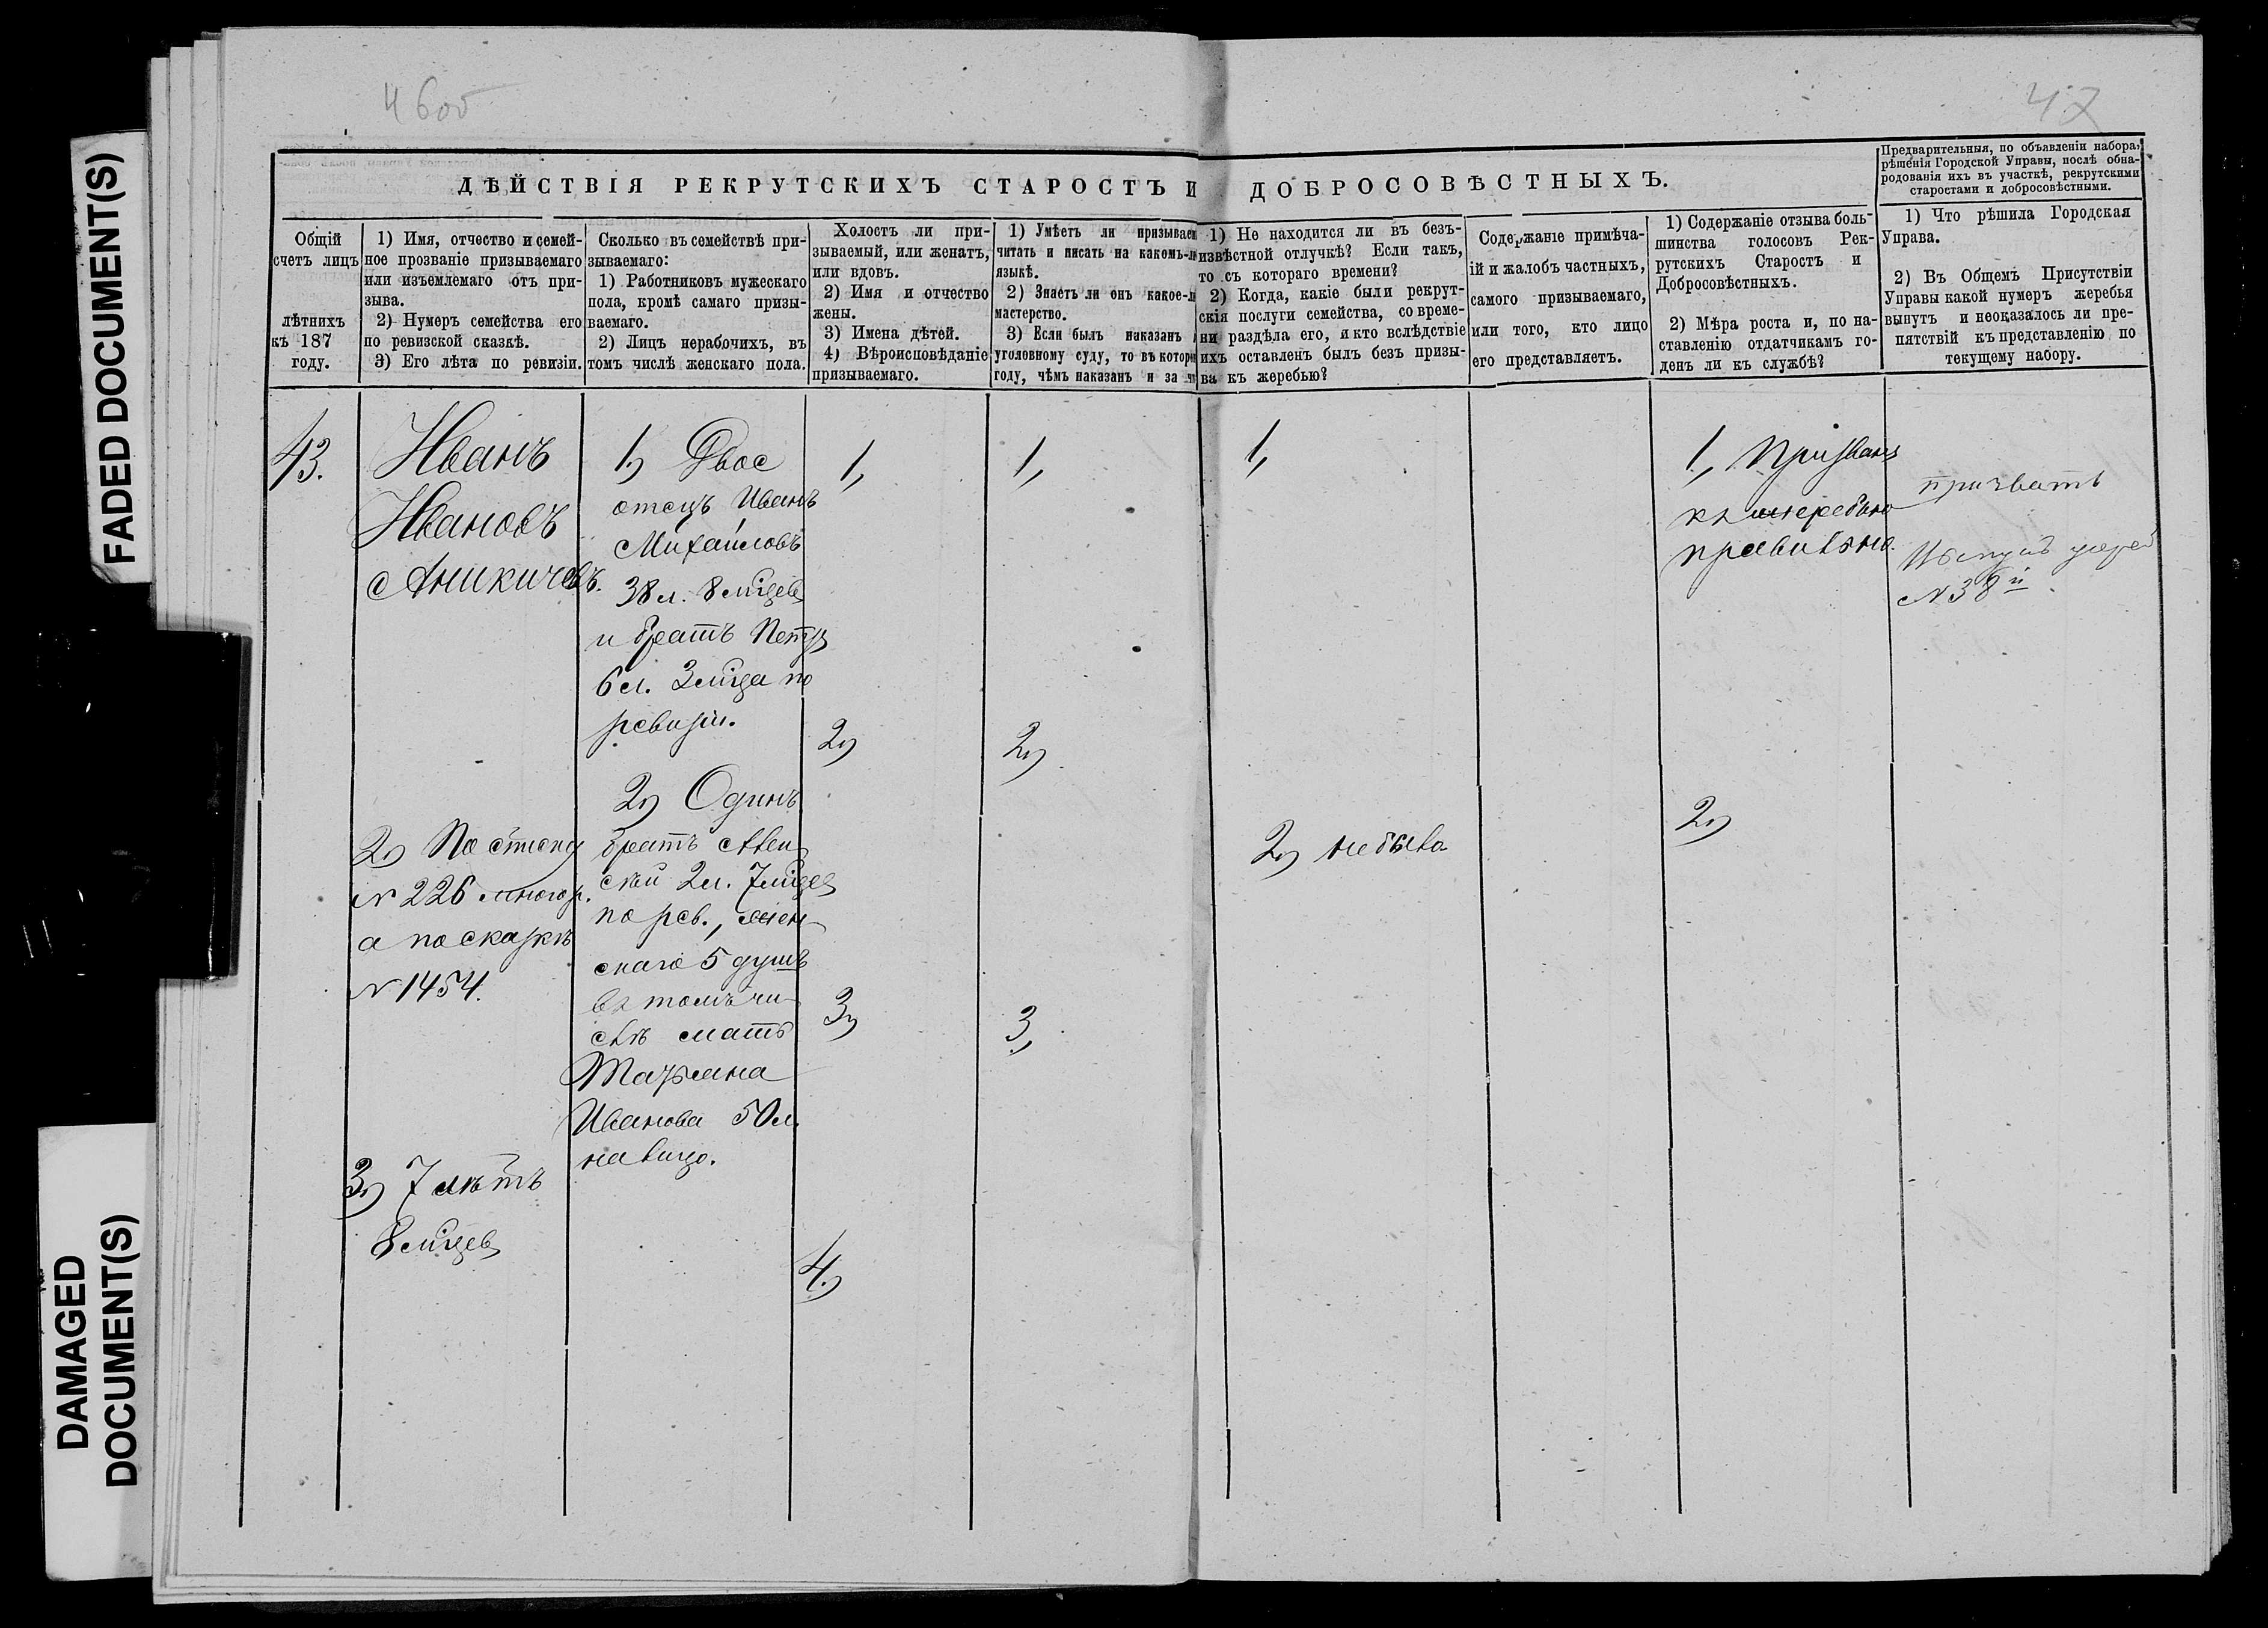 FADED DOCUMENT(S)
DAMAGED
DOCUMENT(S)
46об
47
ДѢЙСТВІЯ РЕКРУТСКИХЪ СТАРОСТЪ И ДОБРОСОВѢСТНЫХЪ.
Предварительныя, по объявленіи набора,
рѣшенія Городской Управы, послѣ обна-
родованія ихъ въ участкѣ, рекрутскими
старостами и добросовѣстными.
Общій
счетъ лицъ
лѣтнихъ
къ 187
году.
1) Имя, отчество и семей-
ное прозваніе призываемаго
или изъемлемаго отъ при-
зыва.
2) Нумеръ семейства его
по ревизской сказкѣ.
3) Его лѣта по ревизіи.
Сколько въ семействѣ при-
зываемаго:
1) Работниковъ мужескаго
пола, кромѣ самаго призы-
ваемаго.
2) Лицъ нерабочихъ, въ
томъ числѣ женскаго пола.
Холостъ ли при-
зываемый, или женатъ,
или вдовъ.
2) Имя и отчество
жены.
3) Имена дѣтей.
4) Вѣроисповѣданіе
призываемаго.
1) Умѣетъ ли призываем
читать и писать на какомъ-л
языкѣ.
2) Знаетъ ли онъ какое-л
мастерство.
3) Если былъ наказанъ
уголовному суду, то въ котор
году, чѣмъ наказанъ и за
1) Не находится ли въ безъ-
извѣстной отлучкѣ? Если такъ,
то съ котораго времени?
2) Когда, какіе были рекрут-
скія послуги семейства, со време-
ни раздѣла его, и кто вслѣдствіе
ихъ оставленъ былъ безъ призы-
ва къ жеребью?
Содержаніе примѣча-
ій и жалобъ частныхъ,
самого призываемаго,
или того, кто лицо
его представляетъ.
1) Содержаніе отзыва боль-
шинства голосовъ Рек-
рутскихъ Старостъ и
Добросовѣстныхъ.
2) Мѣра роста и, по на-
ставленію отдатчикамъ го-
денъ ли къ службѣ?
1) Что рѣшила Городская
Управа.
2) Въ Общемъ Присутствіи
Управы какой нумеръ жеребья
вынутъ и неоказалось ли пре-
пятствій къ представленію по
текущему набору.
43.
Иванъ
Ивановъ
Аникичевъ.
2) По списку
N 226 многор.
а по сказкѣ
N 1454.
3) 7 лѣтъ
8 мѣцев
1) Двое
отецъ Иванъ
Михайловъ
38 л. 8 мѣцев
и братъ Петръ
6 л. 3 мѣца по
ревизіи.
2) Одинъ
братъ Алек
сѣй 2 л. 7 мѣцев
по рев., жен-
скаго 5 душъ
въ томъ чи-
слѣ мать
Татьяна
Иванова 50 л.
на лицо.
1,
2)
3)
4)
1,
2)
3,
1,
2) не была
1, Призванъ
къ жеребью
правильно.
2)
призвать
Вынулъ жереб
N 38й